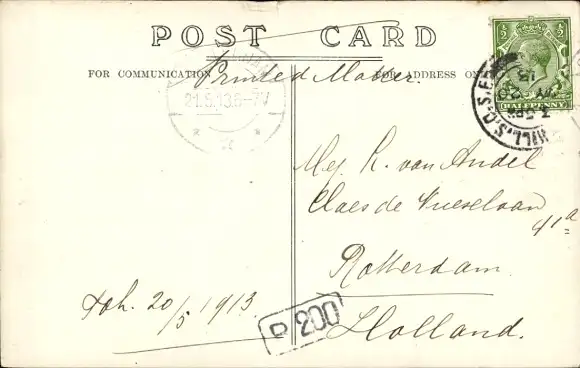 POST CARD
FOR COMMUNICATION
ADDRESS ON
Printed Matter.
½ ½
HALFPENNY
21.5.13.6-7V
Mej. R. van Andel
Claes de Vrieselaan
41a
Rotterdam.
Holland.
20/5 1913
R 200